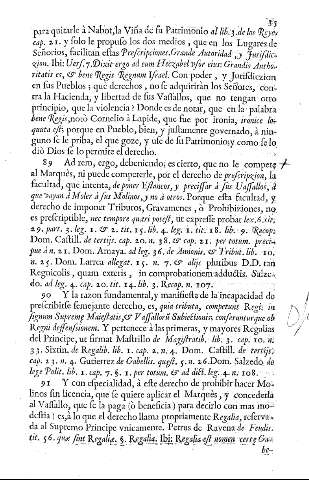 para quitarle à Nabot, la Viña de su Patrimonio al lib. 3. de los Reyes
cap. 21. y solo le propuso los dos medios, que en los Lugares de
Señorios, facilitan estas Prescripciones. Grande Autoridad, y Jurisdic-
cion. Ibi: Vers. 7. Dixit ergo ad eum Hiezabel vsor eius: Grandis Autho-
ritatis es, & bene Regis Regnum Israel. Con poder, y Jurisdiccion
en sus Pueblos; què derechos, no se adquiriràn los Señores, con-
tra la Hacienda, y libertad de sus Vassallos, que no tengan otro
principio, que la violencia? Donde es de notar, que en la palabra
bene Regis, notò Cornelio à Lapide, que fue por ironia, ironice lo-
quuta est; porque en Pueblo, bien, y justamente governado, à nin-
guno se le priba, el que goze, y vse de su Patrimonio, y como se lo
diò Dios se lo permite el derecho.
89 Ad rem, ergo, debeniendo; es cierto, que no le compete
al Marquès, ni puede competerle, por el derecho de prescripcion, la
facultad, que intenta, de poner Estancos, y precissar à sus Vassallos, à
que vayan à Moler à sus Molinos, y no à otros. Porque esta facultad, y
derecho de imponer Tributos, Gravamenes, ò Prohibiciones, no
es prescriptible, nec tempore quæri potest, ut expresse probat lex 6. tit.
29. part. 3. leg. 1. & 2. tit. 15. lib. 4. leg. 1. tit. 18. lib. 9. Recop.
Dom. Castill. de tertijs. cap. 20. n. 38. & cap. 21. per totum. preci-
pue à n. 21. Dom. Amaya. ad leg. 36. de Annonis, & Tribut. lib. 10.
n. 25. Dom. Larrea allegat. 15. n. 7. & alijs pluribus D.D. tan
Regnicolis, quam exteris, in comprobationem adductis. Salze-
do. ad leg. 4. cap. 20. tit. 14. lib. 3. Recop. n. 107.
90 Y la razon fundamental, y manifiesta de la incapacidad de
prescribirse semejante derecho, es, quia tributa, competunt Regi; in
signum Supremæ Maiestatis, & Vassallorū Subiectionis conferanturque ob
Regni deffensionem. Y pertenece à las primeras, y mayores Regalias
del Principe, ut firmat Mastrillo de Magistratib. lib. 3. cap. 10. n.
33. Sixtin. de Regalib. lib. 1. cap. 2. n. 4. Dom. Castill. de tertijs;
cap. 13. n. 4. Gutierrez de Gabellis. quæst. 5. n. 26. Dom. Salzedo de
lege Polit. lib. 1. cap. 7. §. 1. per totum, & ad dict. leg. 4. n. 108.
91 Y con especialidad, à este derecho de prohibir hacer Mo-
linos sin licencia, que se quiere aplicar el Marquès, y concederla
al Vassallo, que se la paga (ò beneficia) para decirlo con mas mo-
destia; es, à lo que el derecho llama propriamente Regalia, reserva-
da al Supremo Principe vnicamente. Petrus de Ravena de Feudis.
tit. 56. quæ sint Regaliæ. §. Regalia. Ibi: Regalia est nomen certe Ga-
be-